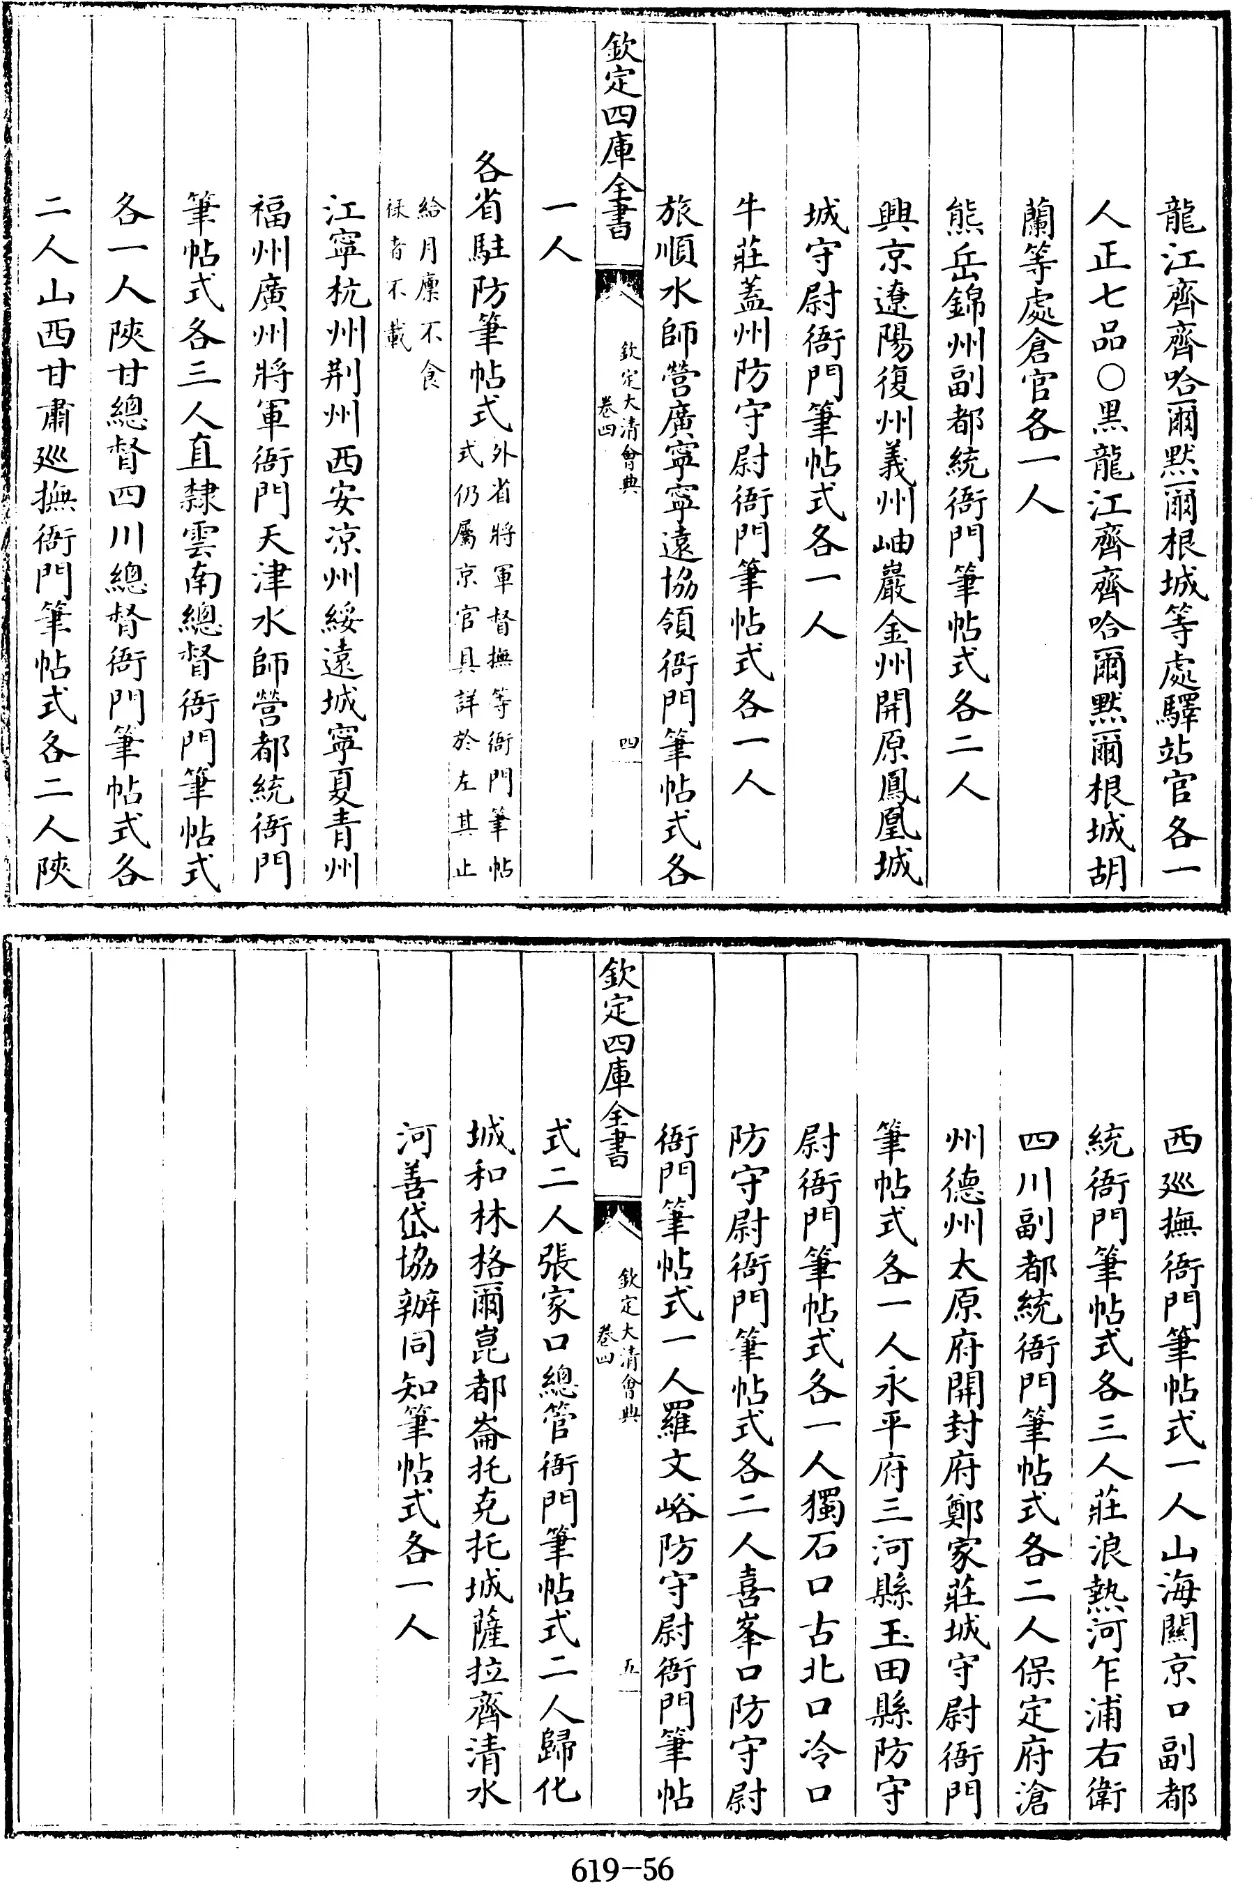 龍江齊齊哈爾黙爾根城等處驛站官各一
人正七品○黑龍江齊齊哈爾黙爾根城胡
蘭等處倉官各一人
熊岳錦州副都統衙門筆帖式各二人
興京遼陽復州義州岫巖金州開原鳳凰城
城守尉衙門筆帖式各一人
牛莊蓋州防守尉衙門筆帖式各一人
旅順水師營廣寧寧遠協領衙門筆帖式各
欽定四庫全書
欽定大清會典
卷四
四
一人
各省駐防筆帖式外省將軍督撫等衙門筆帖
式仍屬京官具詳於左其止
給月廩不食
祿者不載
江寧杭州荆州西安凉州綏遠城寧夏青州
福州廣州將軍衙門天津水師營都統衙門
筆帖式各三人直隸雲南總督衙門筆帖式
各一人陜甘總督四川總督衙門筆帖式各
二人山西甘肅廵撫衙門筆帖式各二人陜
西廵撫衙門筆帖式一人山海關京口副都
統衙門筆帖式各三人莊浪熱河乍浦右衛
四川副都統衙門筆帖式各二人保定府滄
州德州太原府開封府鄭家莊城守尉衙門
筆帖式各一人永平府三河縣玉田縣防守
尉衙門筆帖式各一人獨石口古北口冷口
防守尉衙門筆帖式各二人喜峯口防守尉
衙門筆帖式一人羅文峪防守尉衙門筆帖
欽定四庫全書
欽定大清會典
卷四
五
式二人張家口總管衙門筆帖式二人歸化
城和林格爾崑都崙托克托城薩拉齊清水
河善岱協辦同知筆帖式各一人
619-56